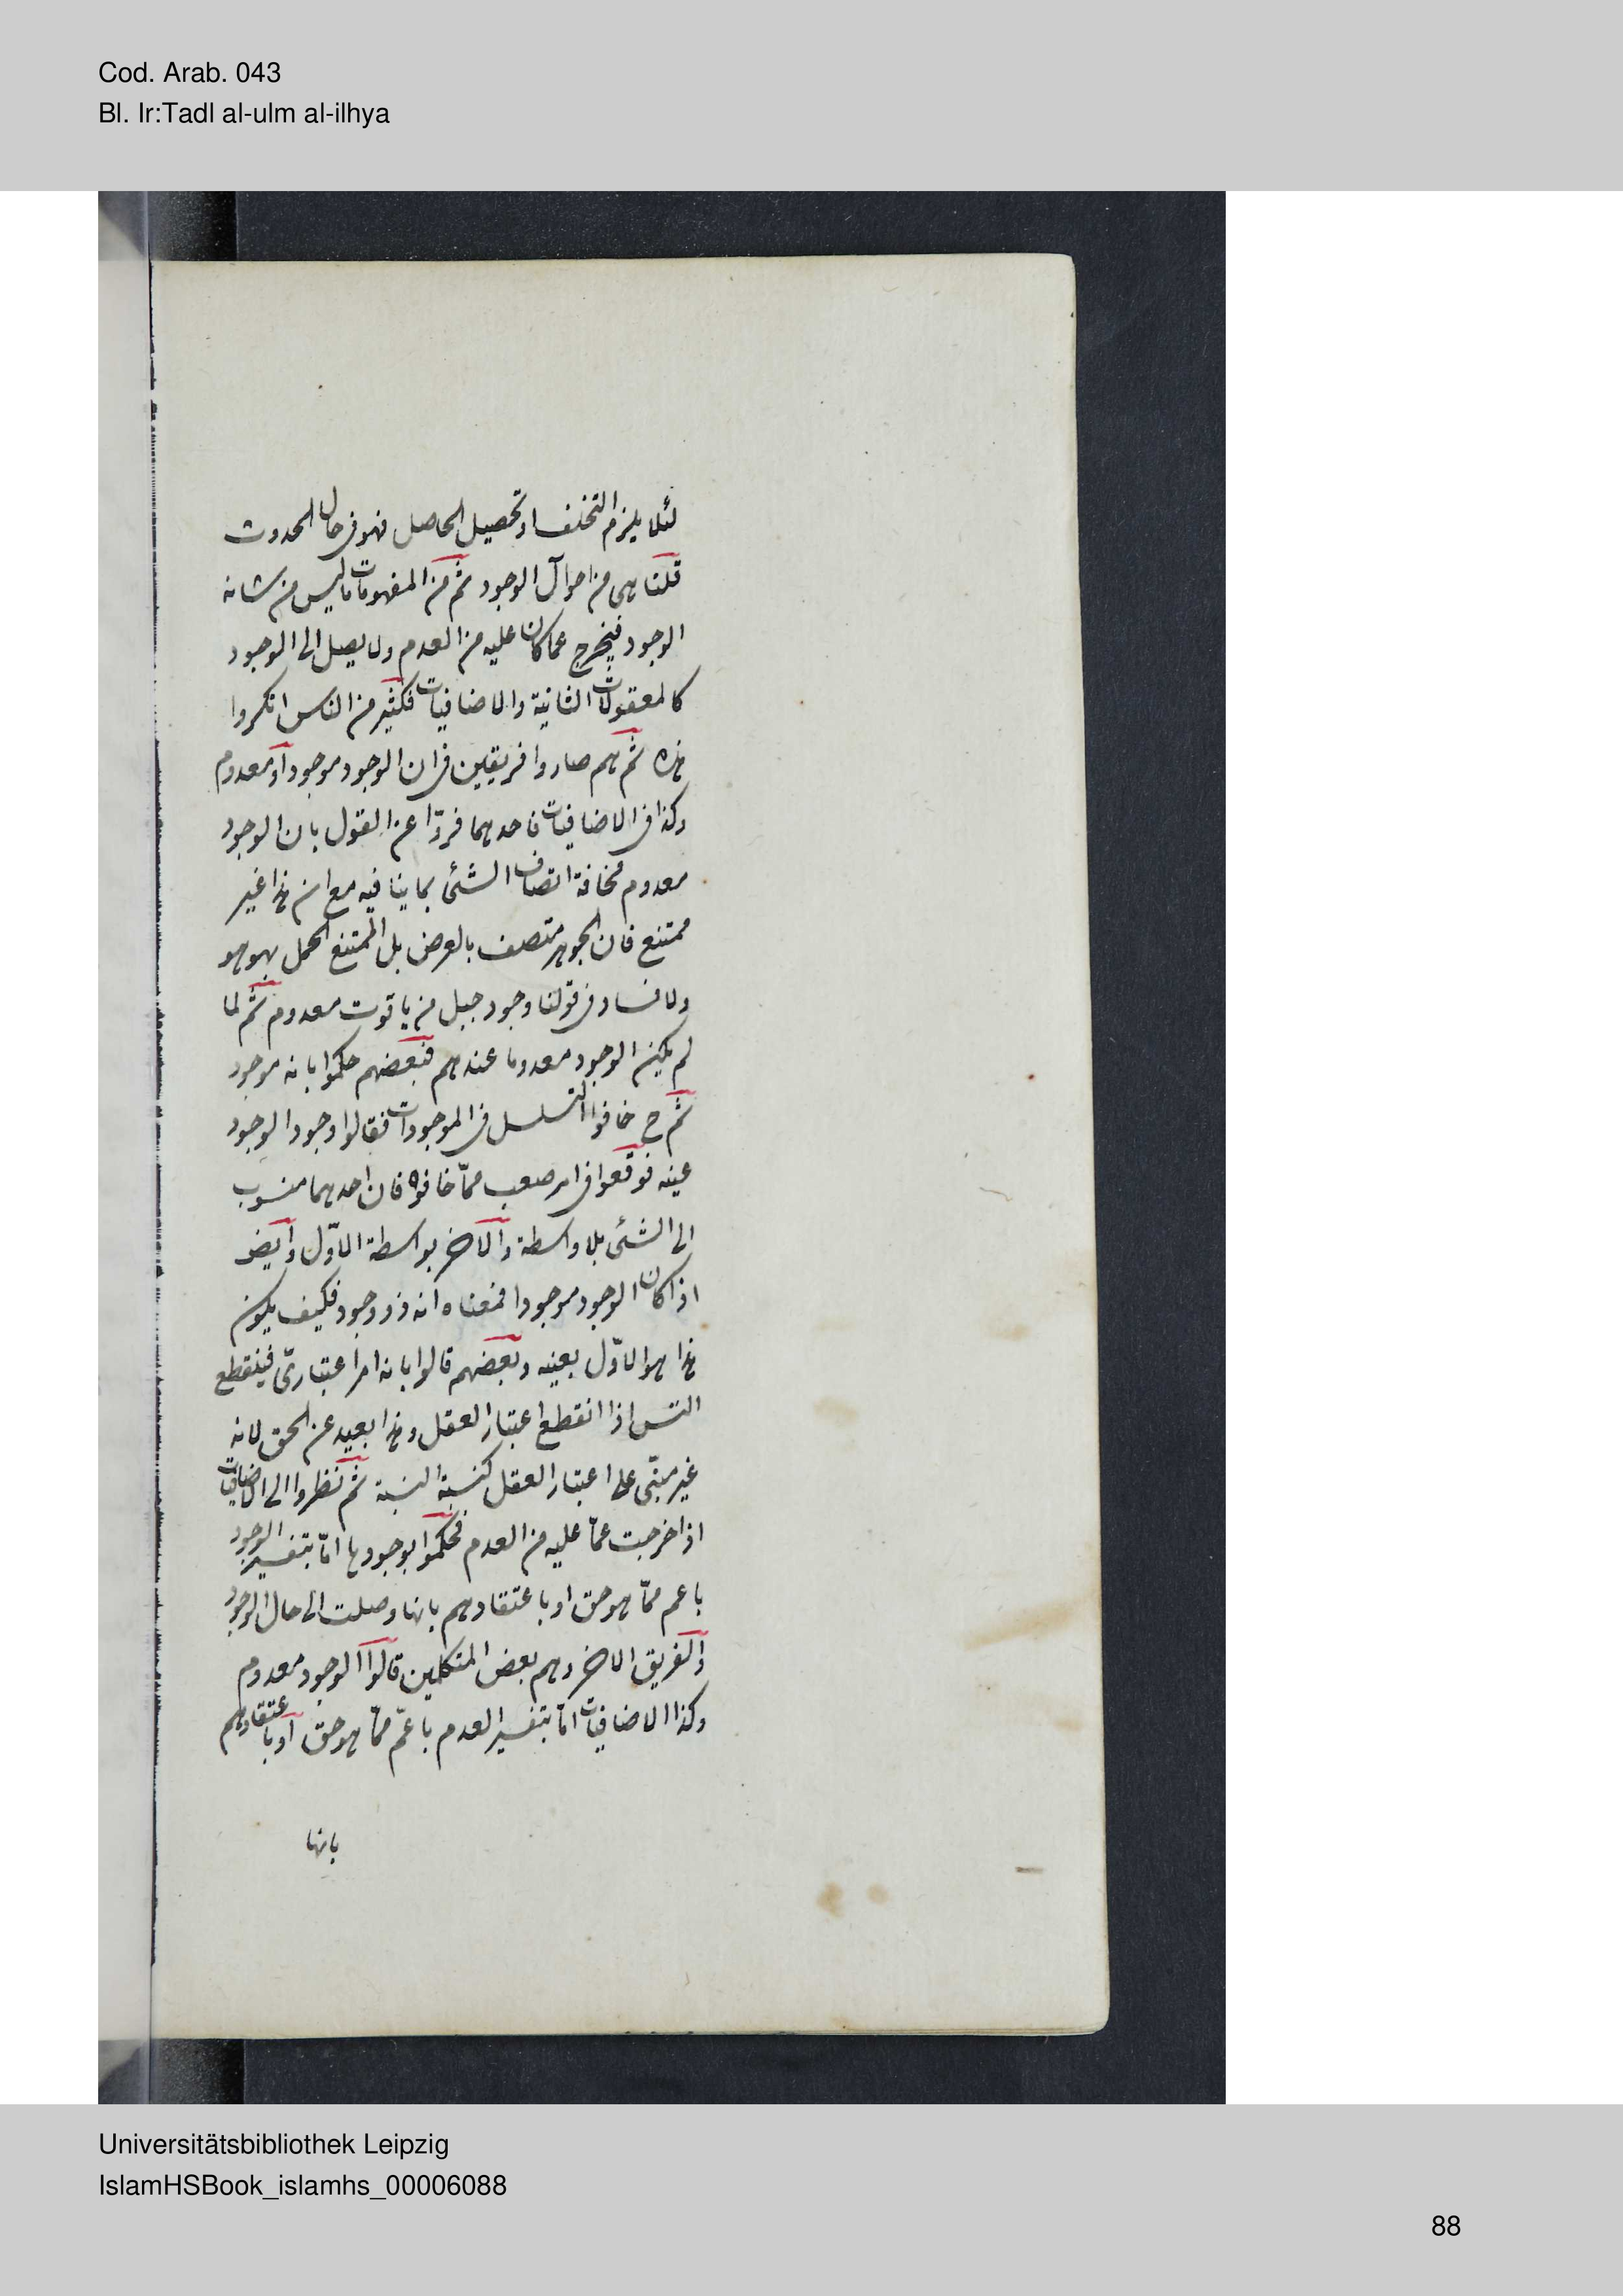 Cod. Arab. 043
Bl. Ir:Tadl al-ulm al-ilhya
لئلا يلزم التخلف او تحصيل الحاصل فهو فى حال الحدوث
قلنا هى من احوال الوجود ثم من المفهومات ما ليس من شانه
الوجود فيخرج عما كان عليه من العدم ولا يصل الى الوجود
كالمعقولات الثانية والاضافيات فكثير من الناس انكروا
هذه ثم هم صاروا فريقين فى ان الوجود موجود او معدوم
وكذا فى الاضافيات فاحدهما فروا عن القول بان الوجود
معدوم مخافة اتصاف الشئ بما ينافيه مع ان هذا غير
ممتنع فان الجوهر متصف بالعرض بل الممتنع الحمل بهو هو
ولا فساد فى قولنا وجود جبل من ياقوت معدوم ثم لما
لم يكن الوجود معدوما عندهم فبعضهم حكموا بانه موجود
ثم ح خافوا التسلسل فى الموجودات فقالوا وجود الوجود
عينه فوقعوا فى امر صعب ممّا خافوه فان احدهما منسوب
الى الشئ بلا واسطة والاخر بواسطة الاوّل وايض
اذا كان الوجود موجودا فمعناه انه ذو وجود فكيف يكون
هذا هو الاوّل بعينه وبعضهم قالوا بانه امر اعتبارىّ فينقطع
التس اذا انقطع اعتبار العقل وهذا بعيد عن الحق لانه
غير مبنّى على اعتبار العقل كنسبة النسبة ثم نظروا الى الاضافيات
اذا خرجت عمّا عليه من العدم فحكموا بوجودها امّا بتفسير الوجود
باعم ممّا هو حق او باعتقادهم بانها وصلت الى حال الوجود
والفريق الاخر وهم بعض المتكلمين قالوا الوجود معدوم
وكذا الاضافيات امّا بتفسير العدم باعمّ ممّا هو حق او باعتقادهم
بانها
Universitätsbibliothek Leipzig
IslamHSBook_islamhs_00006088
88